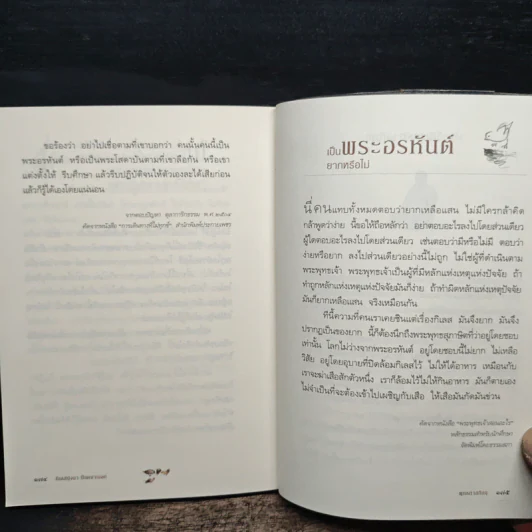 ขอร้องว่า อย่าไปเชื่อตามที่เขาบอกว่า คนนั้นคนนี้เป็น
พระอรหันต์ หรือเป็นพระโสดาบันตามที่เขาลือกัน หรือเขา
แต่งตั้งให้ รีบศึกษา แล้วรีบปฏิบัติจนให้ตัวเองละได้เสียก่อน
แล้วก็รู้ได้เองโดยแน่นอน
จากตอบปัญหา ตุลาการิกธรรม พ.ศ.๒๕๑๔
คัดจากหนังสือ "การเดินทางที่ไม่ทุกข์" สำนักพิมพ์
๑๗๔
เป็นพระอรหันต์
ยากหรือไม่
นี่คนแทบทั้งหมดตอบว่ายากเหลือแสน ไม่มีใครกล้าคิด
กล้าพูดว่าง่าย นี้ขอให้ถือหลักว่า อย่าตอบอะไรลงไปโดยส่วนเดียว
ผู้ใดตอบอะไรลงไปโดยส่วนเดียว เช่นตอบว่ามีหรือไม่มี ตอบว่า
ง่ายหรือยาก ลงไปส่วนเดียวอย่างนี้ไม่ถูก ไม่ใช่ผู้ที่ดำเนินตาม
พระพุทธเจ้า พระพุทธเจ้าเป็นผู้ที่มีหลักแห่งเหตุแห่งปัจจัย ถ้า
ทำถูกหลักแห่งเหตุแห่งปัจจัยมันก็ง่าย ถ้าทำผิดหลักแห่งเหตุปัจจัย
มันก็ยากเหลือแสน จริงเหมือนกัน
ทีนี้ความที่คนเราเคยชินแต่เรื่องกิเลส มันจึงยาก มันจึง
ปรากฏเป็นของยาก นี้ก็ต้องนึกถึงพระพุทธสุภาษิตที่ว่าอยู่โดยชอบ
เท่านั้น โลกไม่ว่างจากพระอรหันต์ อยู่โดยชอบนี้ไม่ยาก ไม่เหลือ
วิสัย อยู่โดยอุบายที่ปิดล้อมกิเลสไว้ ไม่ให้ได้อาหาร เหมือนกับ
เราจะฆ่าเสือสักตัวหนึ่ง เราก็ล้อมไว้ไม่ให้กินอาหาร มันก็ตายเอง
ไม่จำเป็นที่จะต้องเข้าไปเผชิญกับเสือ ให้เสือมันกัดมันข่วน
คัดจากหนังสือ "พระพุทธเจ้าสอนอะไร"
หลักธรรมสำหรับนักศึกษา
จัดพิมพ์โดยธรรมสภา
๑๗๕